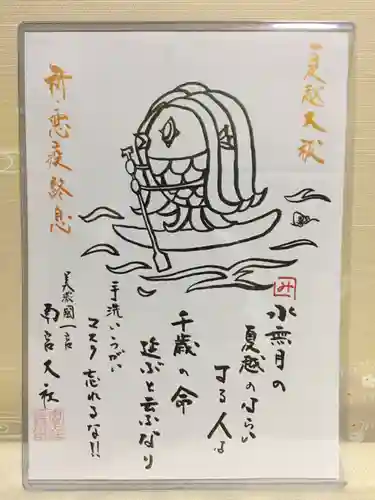 夏越大祓
祈・悪疫終息
み
水無月の
夏越のはらい
する人は
千歳の命
延ぶと云ふなり
手洗いうがい
マスク忘れるな!!
美濃國一宮
南宮大社